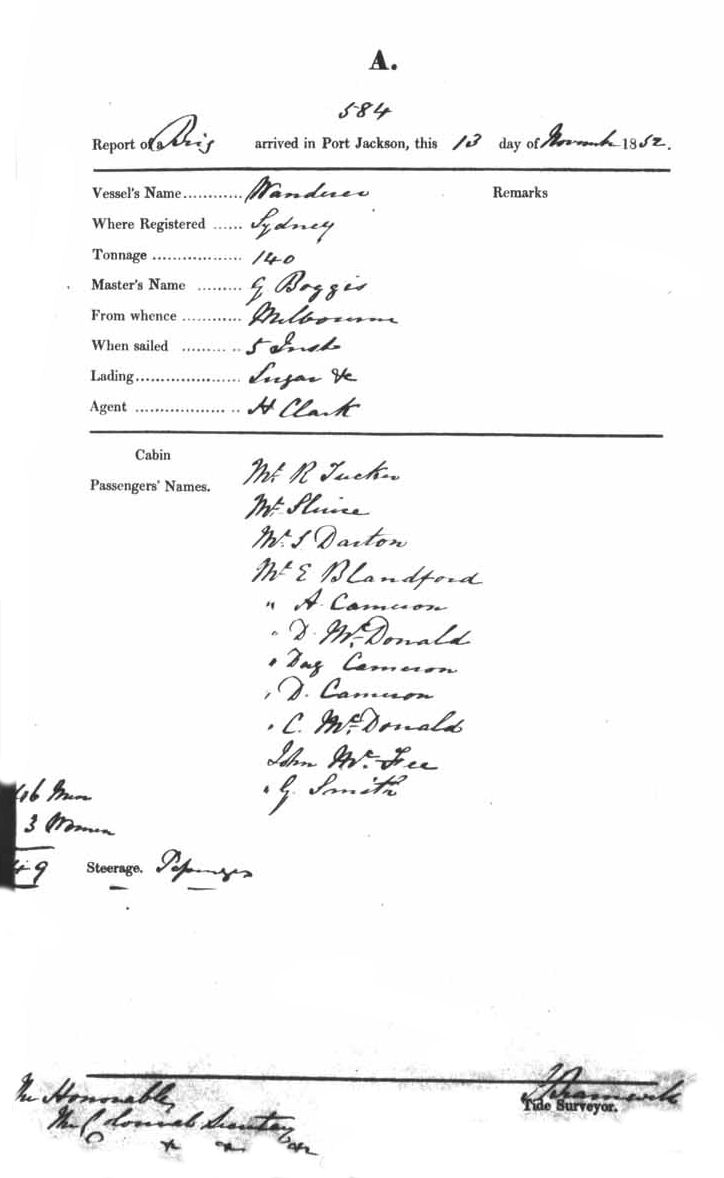 A.
584
Report of Brig arrived in Port Jackson, this 13 day of November 1852.
Vessel's Name............ Wanderer Remarks
Where Registered ...... Sydney
Tonnage .................. 140
Master's Name ......... G Boggis
From whence ............ Melbourne
When sailed ......... .. 5 Inst
Lading..................... Sugar &c
Agent .................. .. H Clark
Cabin
Passengers' Names. Mr. R Tucker
Mr.
Mr. S Darton
Mr E Blandford
" A. Cameron
" D. McDonald
" Dug Cameron
" D. Cameron
" C. McDonald
John Mc. Fee
" G. Smith
46 Men
3 Women
49 Steerage. Passengers
The Honorable
The Colonial Secretary
Tide Surveyor.